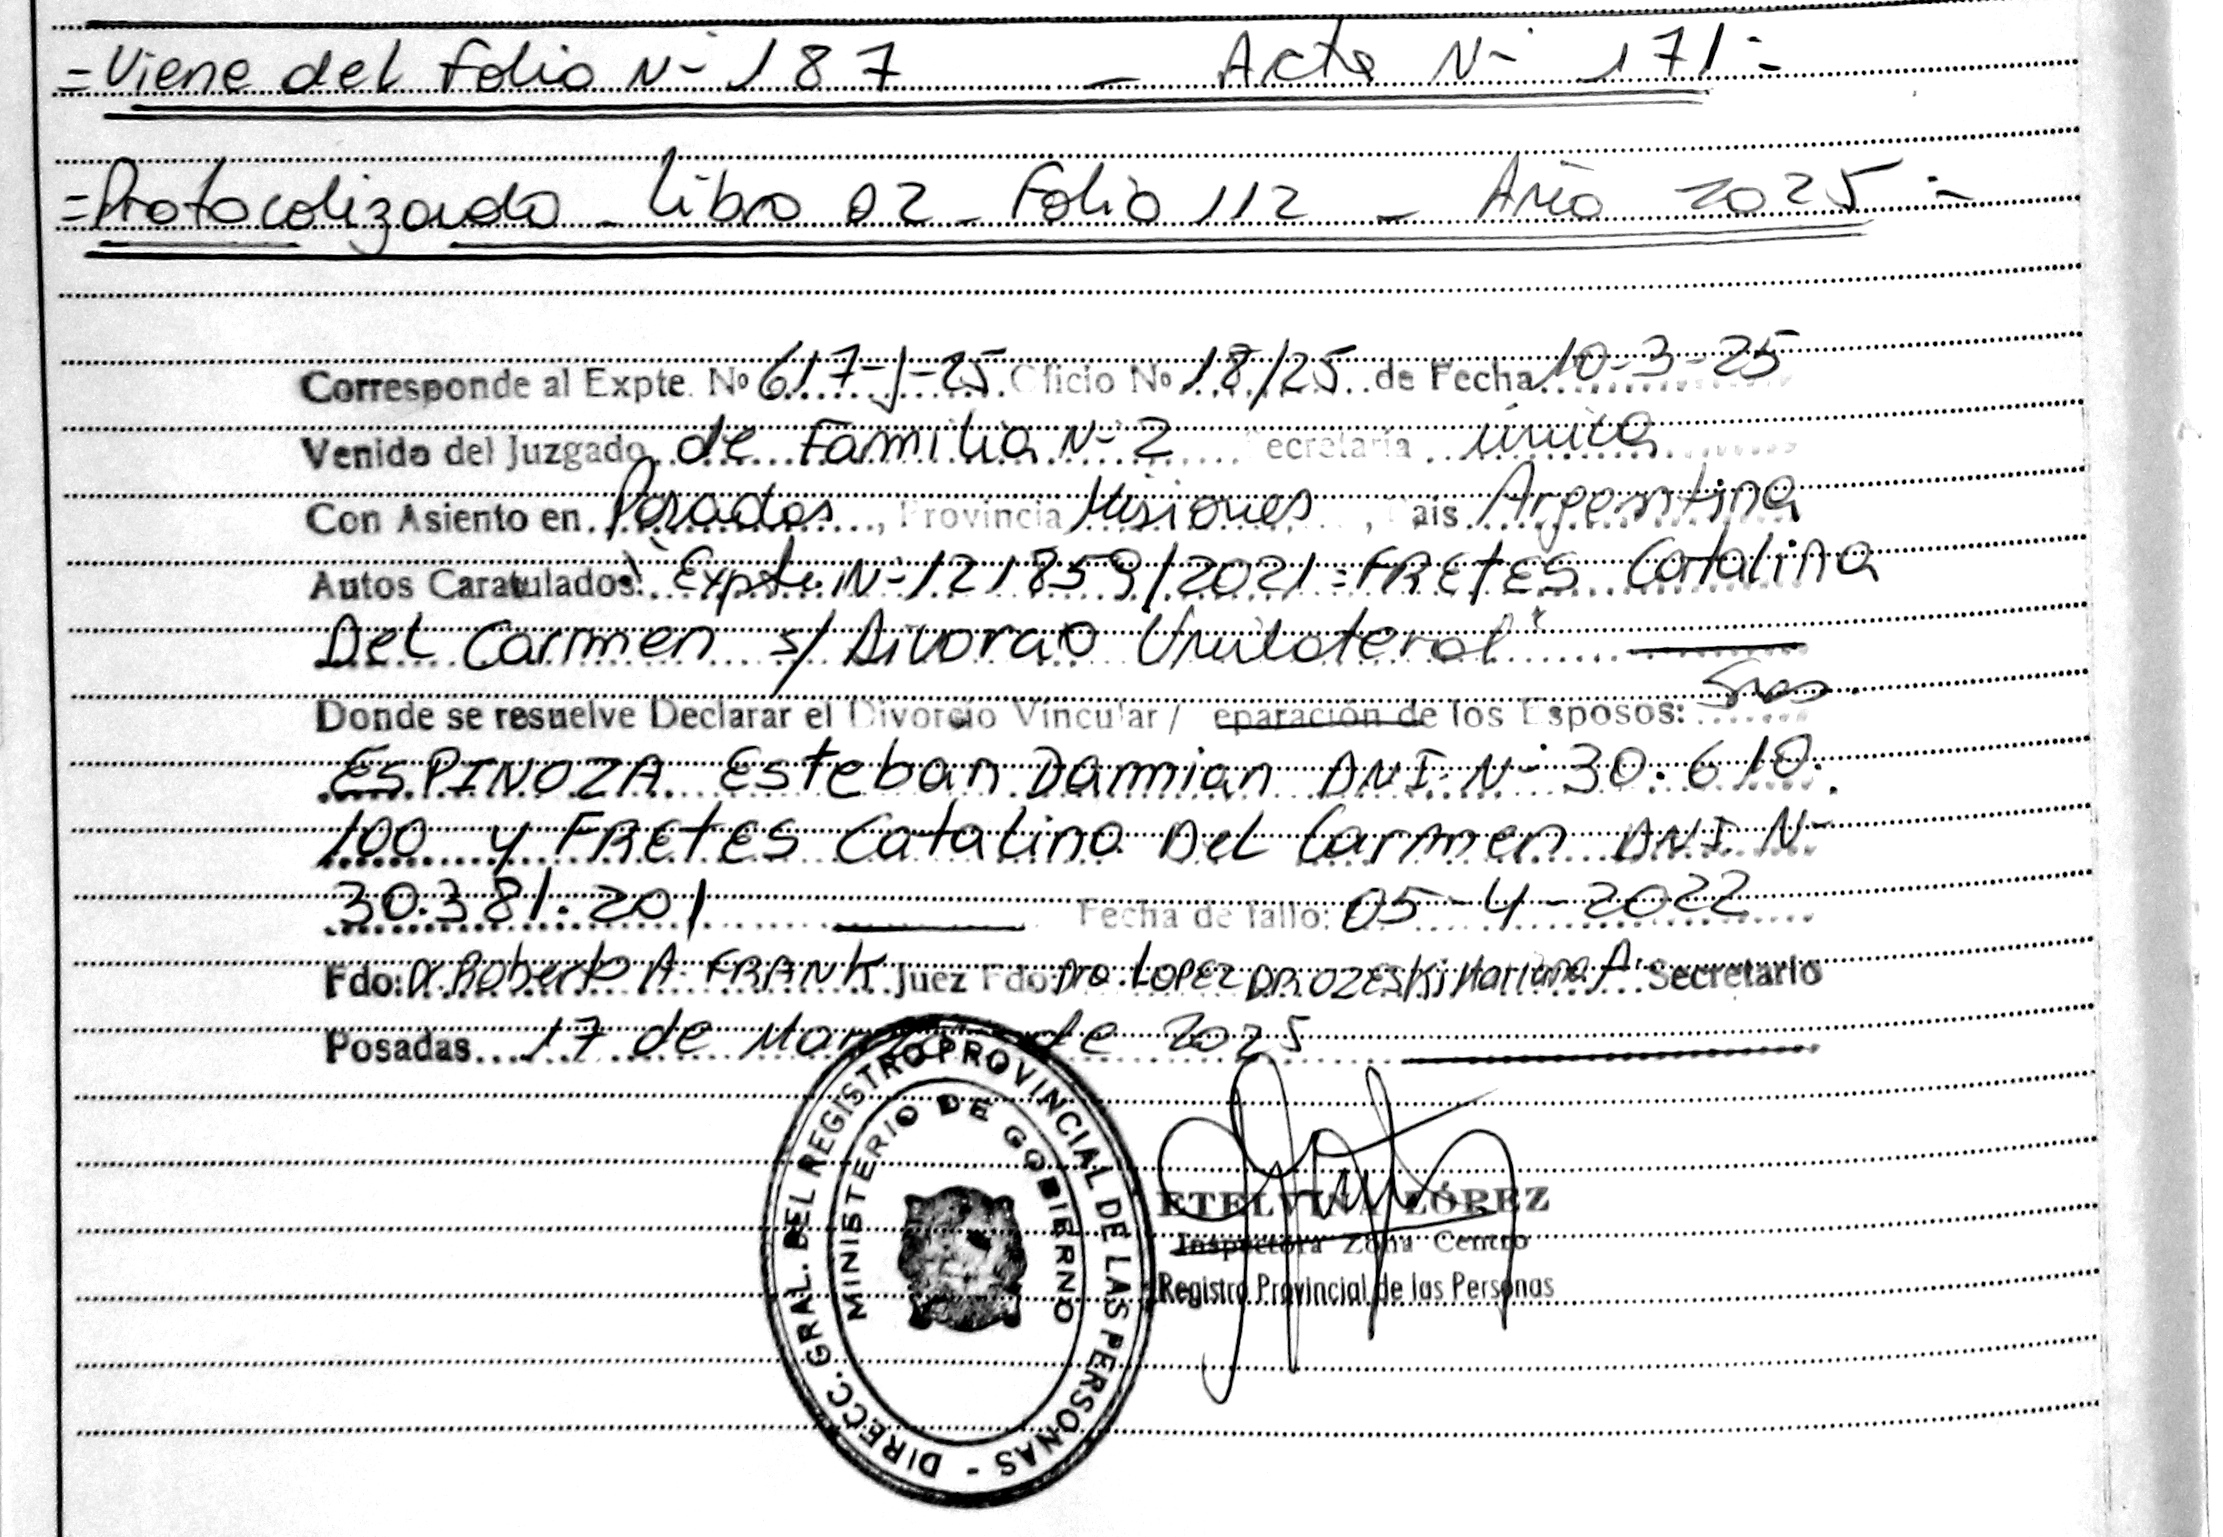 =Viene del Folio N- 187 - Acta N- 171=
=Protocolizado - Libro 02 - Folio 112 - Año 2025=
Corresponde al Expte. Nº 617-J-25 Oficio Nº 18/25 de Fecha 10-3-25
Venido del Juzgado de Familia N-2 Secretaría única
Con Asiento en Posadas, Provincia Misiones, País Argentina
Autos Caratulados: "Expte. N-121859/2021=FRETES Catalina
Del Carmen s/ Divorcio Unilateral"
Donde se resuelve Declarar el Divorcio Vincular/ eparación de los Esposos: Sres.
ESPINOZA Esteban Damian DNI N- 30.610.
100 y FRETES Catalina Del Carmen DNI N-
30.381.201 Fecha de fallo: 05-4-2022
Fdo: Dr Roberto A. FRANK Juez Fdo: Dra. LOPEZ DROZESKI Mariana A. Secretario
Posadas 17 de Marzo de 2025
DIRECC. GRAL. DEL REGISTRO PROVINCIAL DE LAS PERSONAS -
MINISTERIO DE GOBIERNO
ETELVINA LÓPEZ
Inspectora Zona Centro
Registro Provincial de las Personas